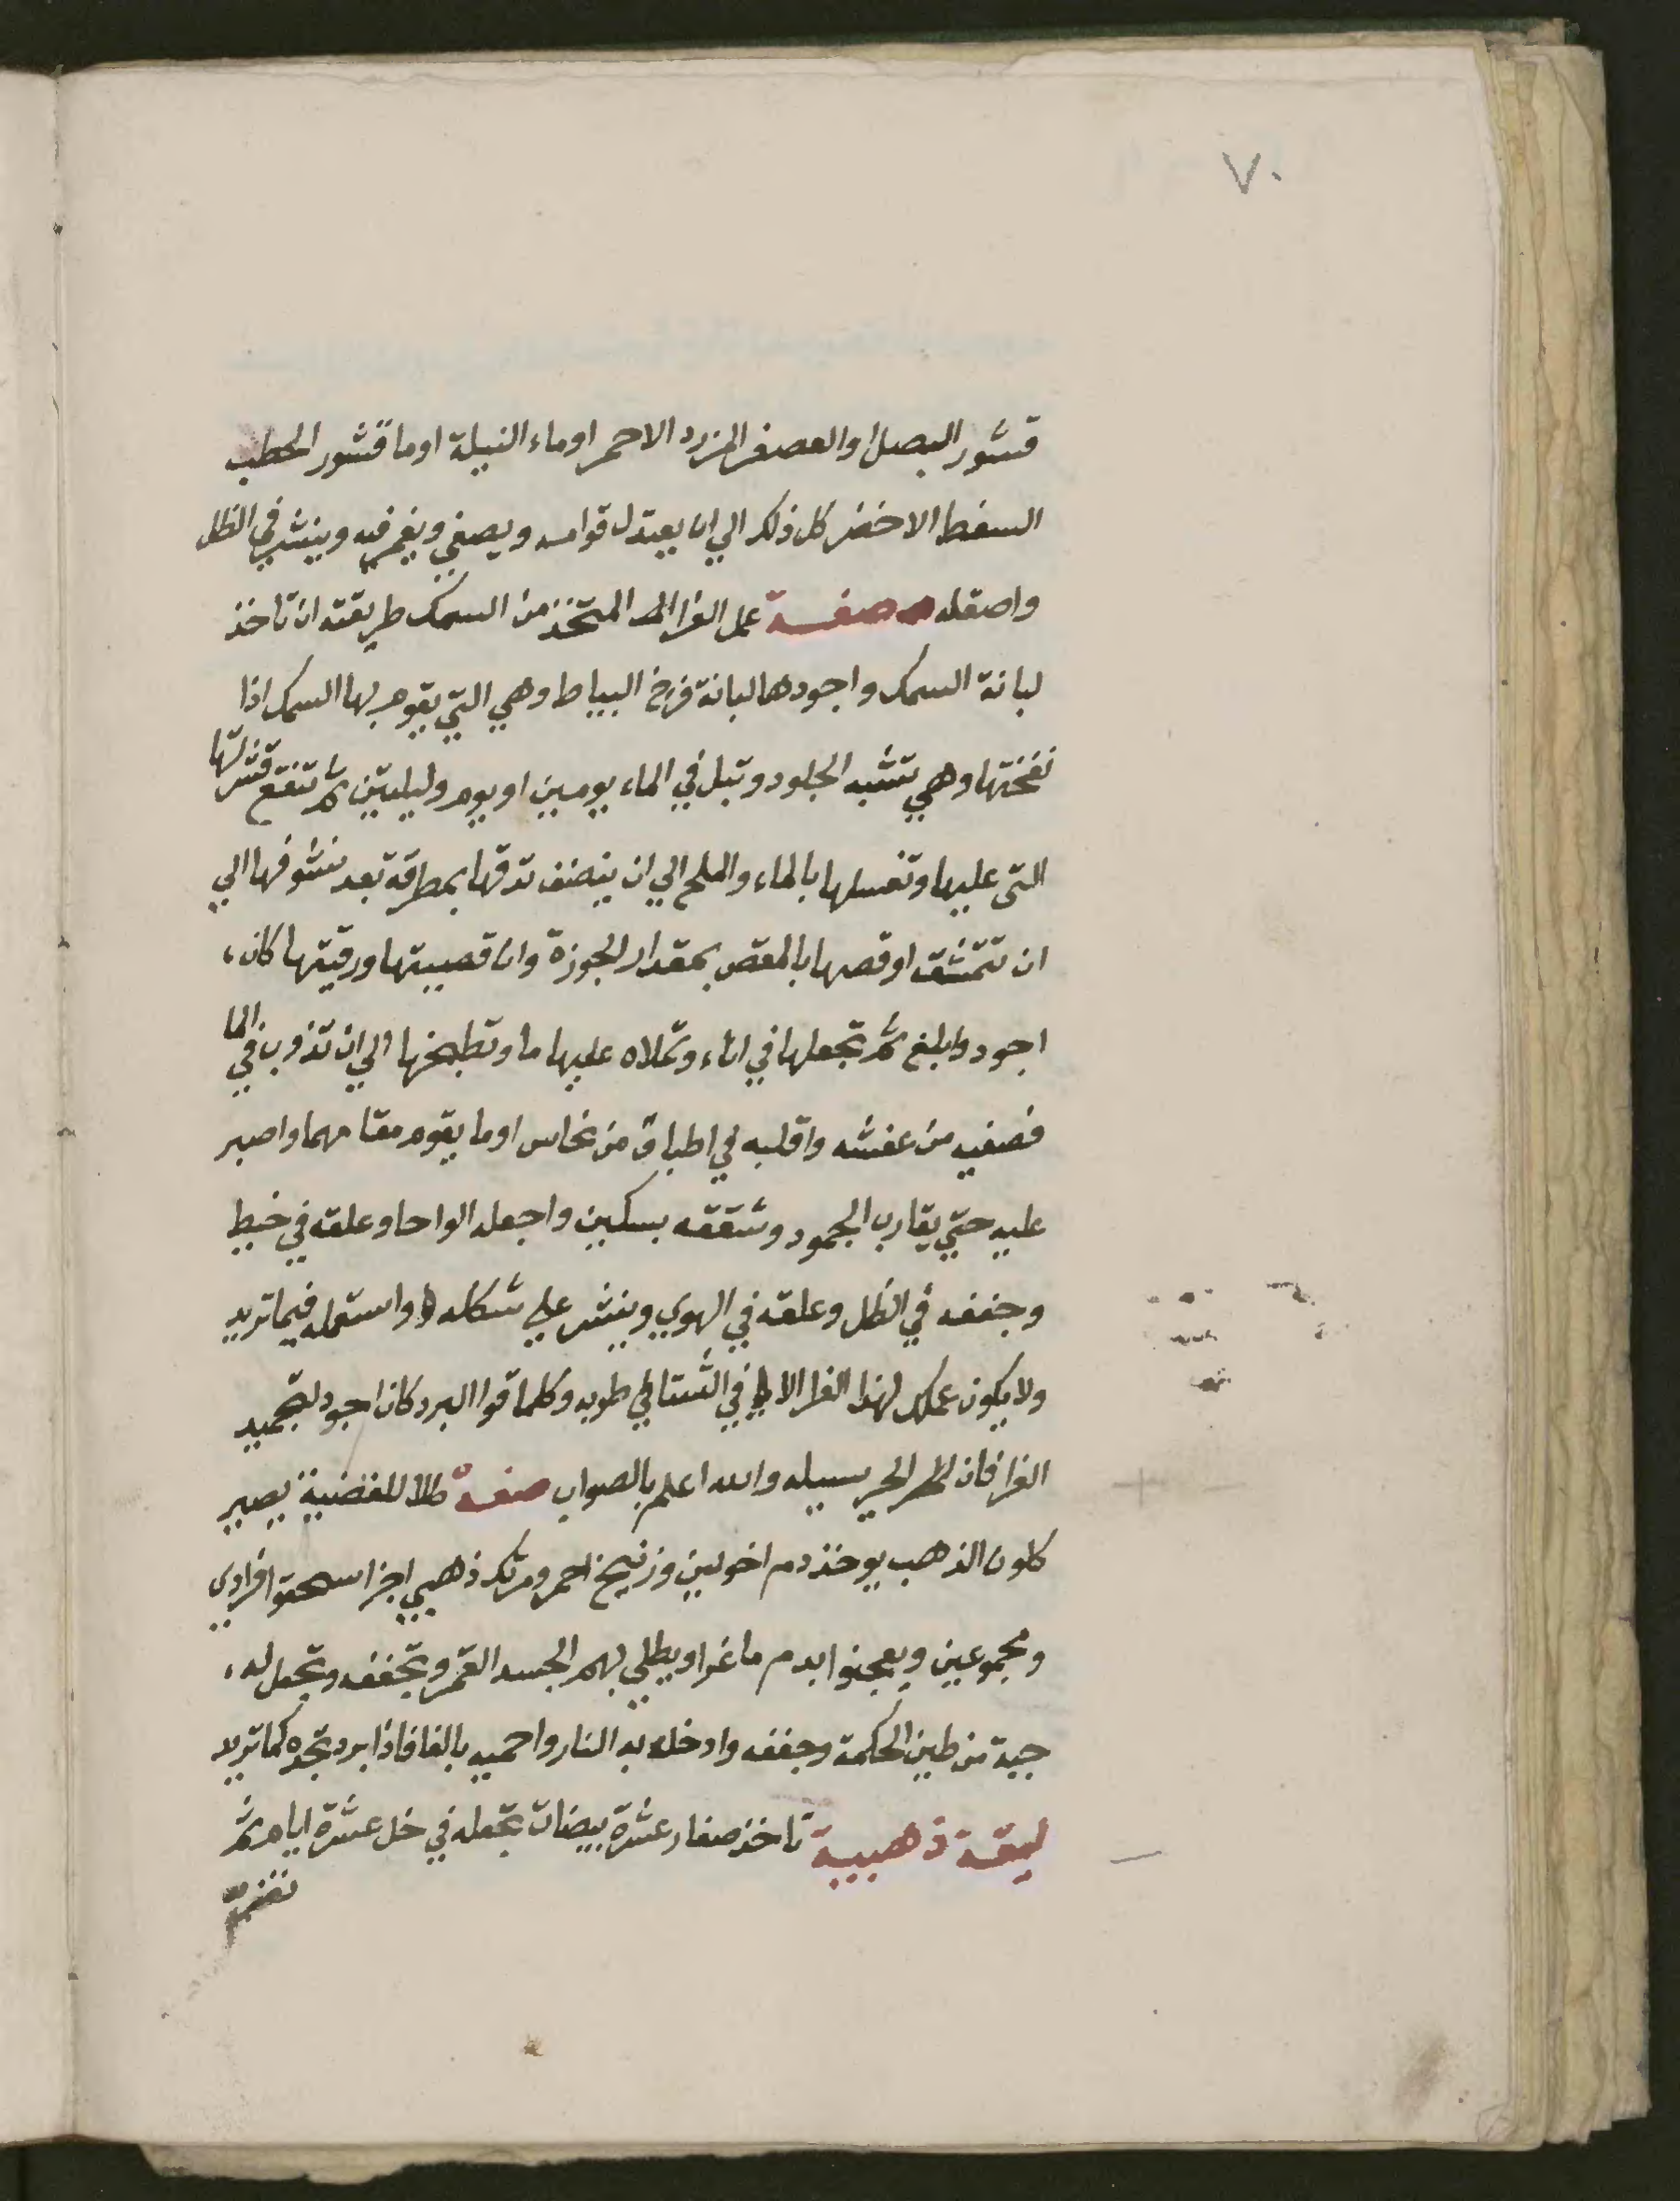 ٧٠
قشور البصل او العصفر المزرد الاحمر او ماء النيلة او ما قشور الحطب
السفط الاخضر كل ذلك الي ان يعتدل قوامه ويصفي ويغمر فيه وينشر في الظل
واصقله صفة عمل الغرا المتخذ من السمك طريقته ان تاخذ
لبانة السمك واجودها لبانة فرخ البياط وهي التي يقوم بها السمك اذا
نفختها وهي تشبه الجلود وتبل في الماء يومين او يوم وليلتين ثم تنقع قشرتها
التي عليها وتغسلها بالماء والملح الي ان ينضف تدقها بمطرقة بعد نشوفها الي
ان تتمشق او قصها بالمقص بمقدار الجوزة وان قصيتها ورقيتها كان،
اجود وابلغ ثم تجعلها في اناء وتملاه عليها ما وتطبخها الي ان تذوب في الما
فصفيه من عفشه واقلبه في اطباق من نحاس او ما يقوم مقامهما واصبر
عليه حتي يقارب الجمود وشققه بسكين واجعله الواحا وعلقه في خيط
وجففه في الظل وعلقه في الهوي وينشر علي شكله واستعمله فيما تريد
ولا يكون عملك لهذا الغرا الا في الشتا في طوبه وكلما قوا البرد كان اجود لتجميد
الغرا فان الحر يسيله والله اعلم بالصواب صفة طلا للفضية يصير
كلون الذهب يوخذ دم اخوين وزنيخ احمر ومرتك ذهبي اجزا اسحقوا فرادي
ومجموعين ويعجنوا بدم ما غرا ويطلي بهم الجسد القمر وتجففه وتجعل له،
جبة من طين الحكمة وجففه وادخل به النار واحميه بالغا فاذا برد تجده كما تريد
ليقة ذهبية تاخذ صفار عشرة بيضات تجعله في خل عشرة ايام ثم